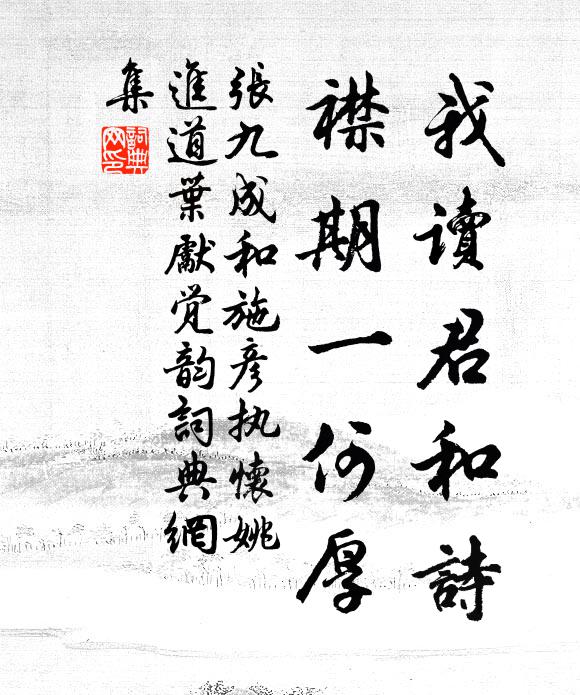 我讀君和詩
襟期一何厚
張九成和施彦执懷姚
進道葉獻觉韵詞典網
集
詞典
网印